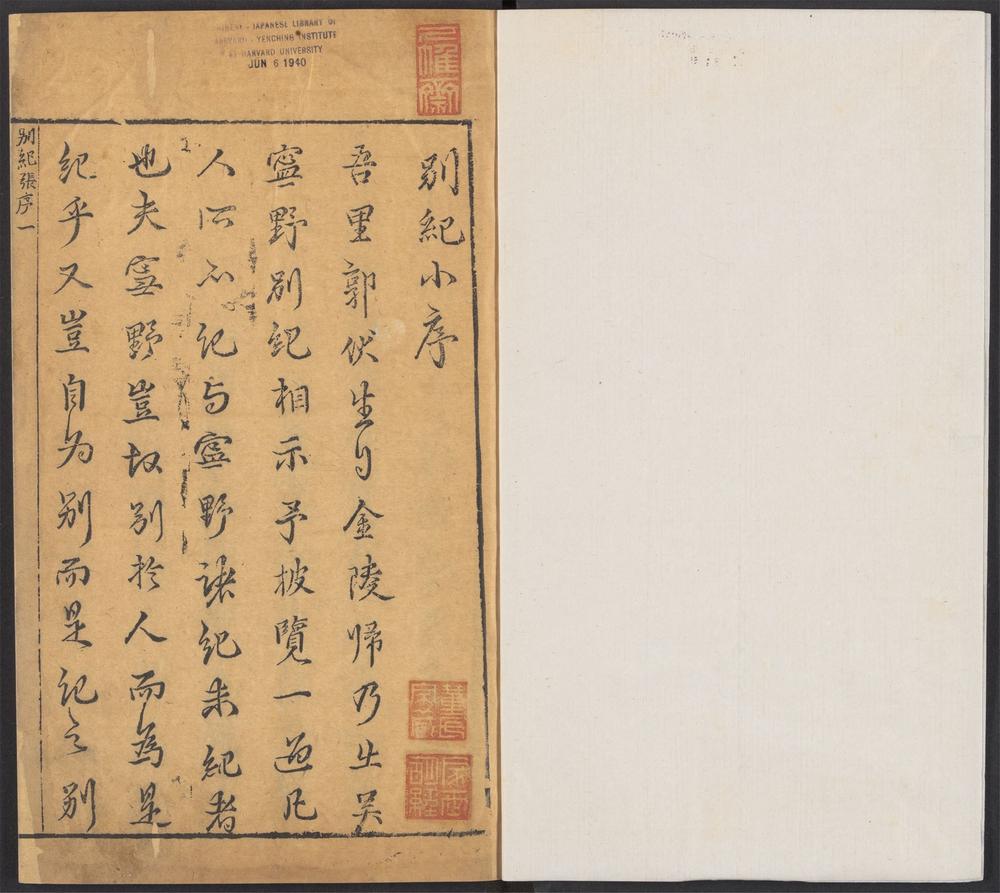 CHINESE - JAPANESE LIBRARY OF
HARVARD - YENCHING INSTITUTE
AT HARVARD UNIVERSITY
JUN 6 1940
別紀小序
吾里郭伏生自金陵歸乃出吳
寧野別紀相示予披覽一過凡
人所不記与寧野諸紀未紀者
也夫寧野豈故別於人而為是
紀乎又豈自為別而是記之別
別紀張序 一